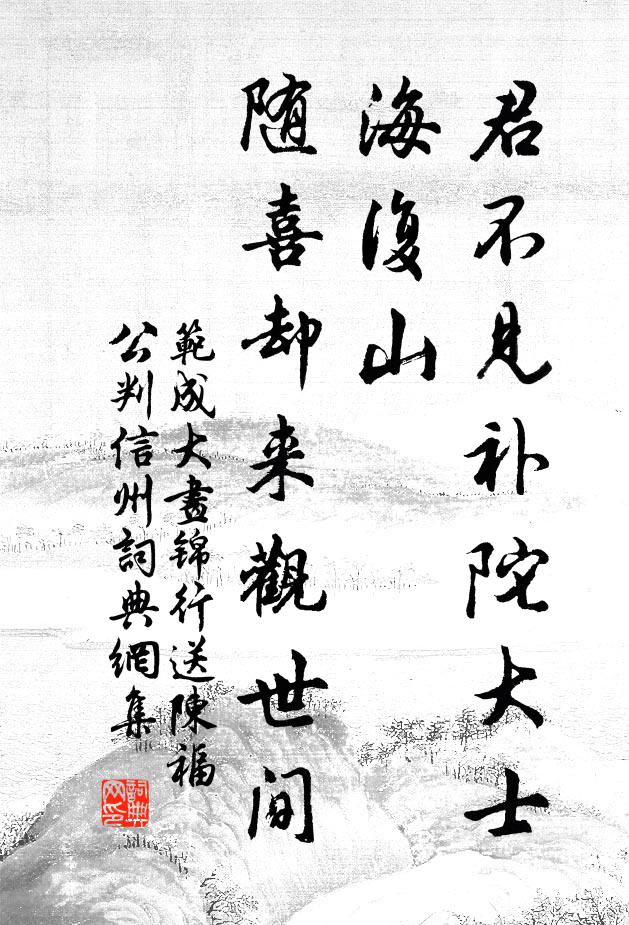 君不见补陀大士
海復山
随喜却来觀世间
範成大晝锦行送陳福
公判信州詞典網集
詞典
网印